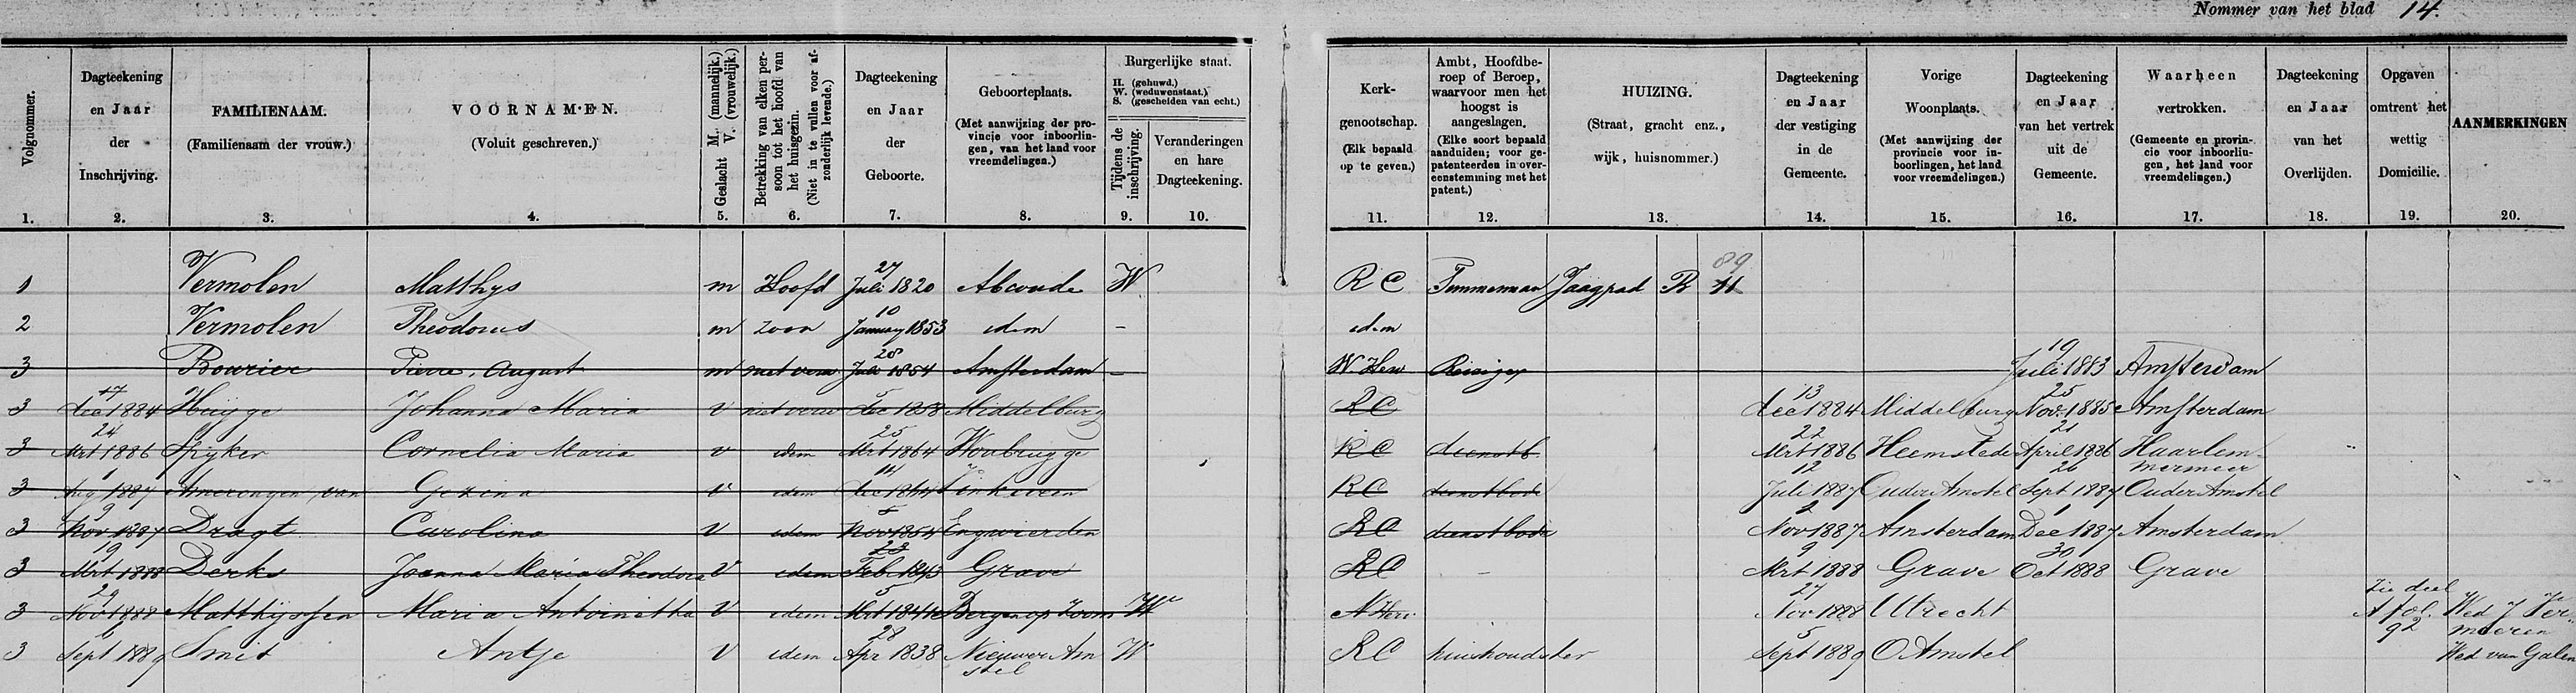 Nommer van het blad 14.
Volgnommer. 1.
Dagteekening en Jaar der Inschrijving. 2.
FAMILIENAAM. (Familienaam der vrouw.) 3.
VOORNAMEN. (Voluit geschreven.) 4.
Geslacht M. (mannelijk.) V. (vrouwelijk.) 5.
Betrekking van elken persoon tot het hoofd van het huisgezin. (Niet in te vullen voor afzonderlijk levende.) 6.
Dagteekening en Jaar der Geboorte. 7.
Geboorteplaats. (Met aanwijzing der provincie voor inboorlingen, van het land voor vreemdelingen.) 8.
Burgerlijke staat. H. (gehuwd.) W. (weduwenstaat.) S. (gescheiden van echt.)
Tijdens de inschrijving. 9.
Veranderingen en hare Dagteekening. 10.
Kerk-genootschap. (Elk bepaald op te geven.) 11.
Ambt, Hoofdberoep of Beroep, waarvoor men het hoogst is aangeslagen. (Elke soort bepaald aanduiden; voor gepatenteerden in overeenstemming met het patent.) 12.
HUIZING. (Straat, gracht enz., wijk, huisnommer.) 13.
Dagteekening en Jaar der vestiging in de Gemeente. 14.
Vorige Woonplaats. (Met aanwijzing der provincie voor inboorlingen, het land voor vreemdelingen.) 15.
Dagteekening en Jaar van het vertrek uit de Gemeente. 16.
Waarheen vertrokken. (Gemeente en provincie voor inboorlingen, het land voor vreemdelingen.) 17.
Dagteekening en Jaar van het Overlijden. 18.
Opgaven omtrent het wettig Domicilie. 19.
AANMERKINGEN 20.
1 Vermolen Matthys m Hoofd 27 Juli 1820 Abcoude W R C Timmerman Jaagpad R 11 89
2 Vermolen Theodorus m zoon 10 January 1853 idem - idem
3 Bourier Pierre, August m niet verw 28 Juli 1854 Amsterdam - W. Herv Reiziger 19 Juli 1883 Amsterdam
3 17 dec 1884 Huijge Johanna Maria v niet verw 5 dec 1858 Middelburg R C 13 dec 1884 Middelburg 25 Nov. 1885 Amsterdam
3 24 Mrt 1886 Spijker Cornelia Maria v idem 25 Mrt 1864 Woubrugge R C dienstb. 22 Mrt 1886 Heemstede 21 April 1886 Haarlemmermeer
3 1 Aug 1887 Amerongen van Gezina v idem 14 dec 1864 Vinkeveen R C dienstbode 12 Juli 1887 Ouder Amstel 26 Sept 1887 Ouder Amstel
3 9 Nov 1887 Dragt Carolina v idem Nov 1854 Engwierden R C dienstbode 2 Nov 1887 Amsterdam 1 Dec 1887 Amsterdam
3 19 Mrt 1888 Derks Joanna Maria Theodora v idem 23 Feb 1843 Grave R C - 9 Mrt 1888 Grave 30 Oct 1888 Grave
3 29 Nov 1888 Matthijssen Maria Antoinetta v idem 5 Mrt Bergen op Zoom W N Herv. 27 Nov 1888 Utrecht Zie deel A fol. 92 Wed J Vermeeren
3 6 Sept 1889 Smit Antje V idem 28 Apr 1838 Nieuwer Amstel W R C huishoudster 5 Sept 1889 O Amstel Wed van Galen